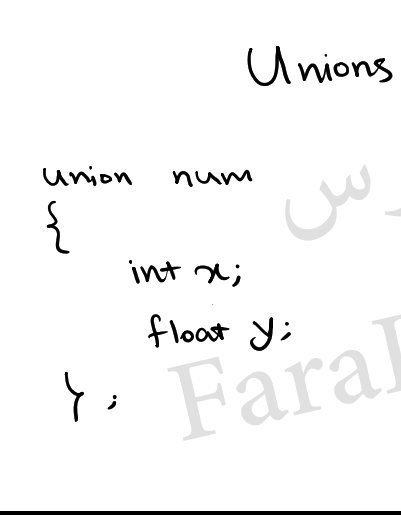 Unions
union num
{
int x;
float y;
};